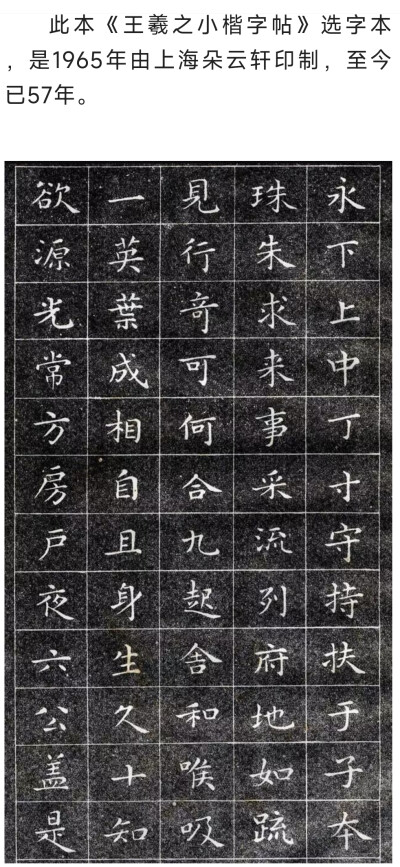 此本《王羲之小楷字帖》选字本
，是1965年由上海朵云轩印制，至今
已57年。
永下上中丁寸守持扶于子本
珠朱求来事采流列府地如疏
見行奇可何合九起舍和唉吸
一英葉成相自且身生久十知
欲源光常方房户夜六公盖是